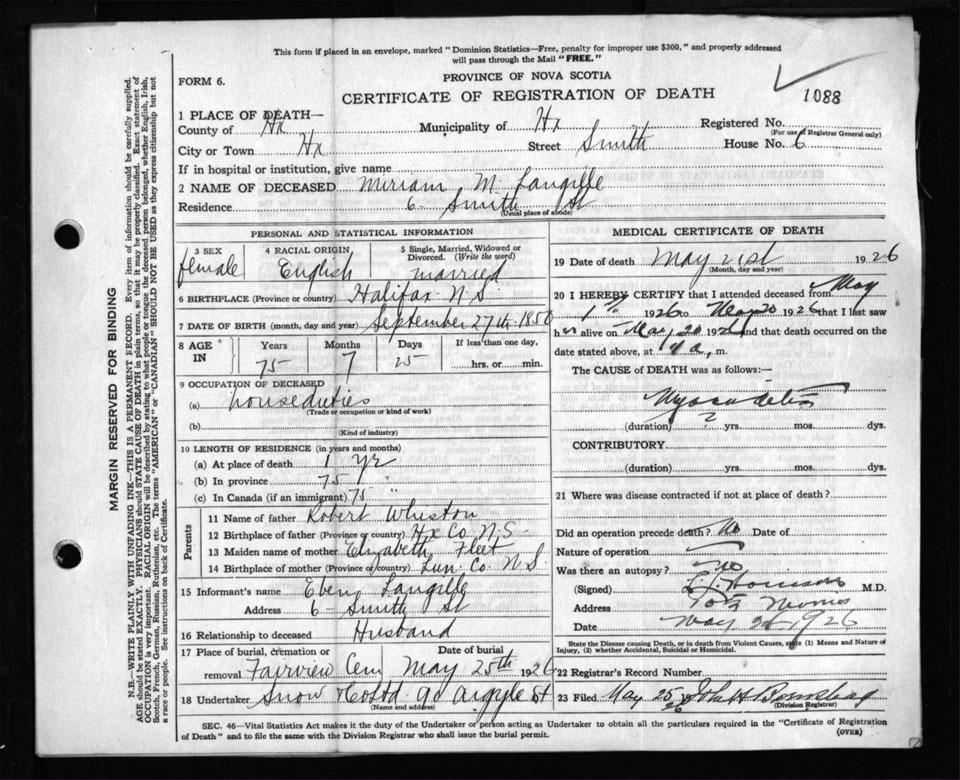 This form if placed in an envelope, marked "Dominion Statistics—Free, penalty for improper use $300," and properly addressed
will pass through the Mail "FREE."
FORM 6.
PROVINCE OF NOVA SCOTIA
CERTIFICATE OF REGISTRATION OF DEATH
1088
1 PLACE OF DEATH—
County of Hx Municipality of Hx Registered No.
(For use of Registrar General only)
City or Town Hx Street Smith House No. 6
If in hospital or institution, give name
2 NAME OF DECEASED Miriam M. Langille
Residence 6 Smith St
(Usual place of abode)
PERSONAL AND STATISTICAL INFORMATION
3 SEX 4 RACIAL ORIGIN, 5 Single, Married, Widowed or
Divorced. (Write the word)
female English married
6 BIRTHPLACE (Province or country) Halifax N.S.
7 DATE OF BIRTH (month, day and year) September 27th 1850
8 AGE IN Years Months Days If less than one day,
75 7 25 hrs. or min.
9 OCCUPATION OF DECEASED
(a) house duties
(Trade or occupation or kind of work)
(b)
(Kind of industry)
10 LENGTH OF RESIDENCE (in years and months)
(a) At place of death 1 yr
(b) In province 75 "
(c) In Canada (if an immigrant) 75 "
Parents
11 Name of father Robert Whiston
12 Birthplace of father (Province or country) Hx Co. N.S.
13 Maiden name of mother Elizabeth Fleet
14 Birthplace of mother (Province or country) Lun. Co. N.S.
15 Informant's name Eben Langille
Address 6 Smith St
16 Relationship to deceased Husband
17 Place of burial, cremation or Date of burial
removal Fairview Cem May 25th 1926
18 Undertaker Snow & Co Ltd 90 Argyle St
(Name and address)
MEDICAL CERTIFICATE OF DEATH
19 Date of death May 21st 1926
(Month, day and year)
20 I HEREBY CERTIFY that I attended deceased from May
1st 1926 to May 20 1926 that I last saw
h alive on May 20 1926 and that death occurred on the
date stated above, at a. m.
The CAUSE of DEATH was as follows:—
Myocarditis
(duration) ? yrs. mos. dys.
CONTRIBUTORY
(duration) yrs. mos. dys.
21 Where was disease contracted if not at place of death?
Did an operation precede death? No Date of
Nature of operation
Was there an autopsy? no
(Signed) M.D.
Address Morris
Date May 1926
State the Disease causing Death, or in death from Violent Causes, state (1) Means and Nature of
Injury, (2) whether Accidental, Suicidal or Homicidal.
22 Registrar's Record Number
23 Filed May 25 26 John H
(Division Registrar)
SEC. 46—Vital Statistics Act makes it the duty of the Undertaker or person acting as Undertaker to obtain all the particulars required in the "Certificate of Registration
of Death" and to file the same with the Division Registrar who shall issue the burial permit.
(OVER)
MARGIN RESERVED FOR BINDING
N.B.—WRITE PLAINLY WITH UNFADING INK—THIS IS A PERMANENT RECORD. Every item of information should be carefully supplied.
AGE should be stated EXACTLY. PHYSICIANS should STATE CAUSE OF DEATH in plain terms, so that it may be properly classified. Exact statement of
OCCUPATION is very important. RACIAL ORIGIN will be described by stating to what people or tongue the deceased person belonged, whether English, Irish,
Scotch, French, German, Russian, Ruthenian, etc. The terms "AMERICAN" or "CANADIAN" SHOULD NOT BE USED as they express citizenship but not
a race or people. See instructions on back of Certificate.